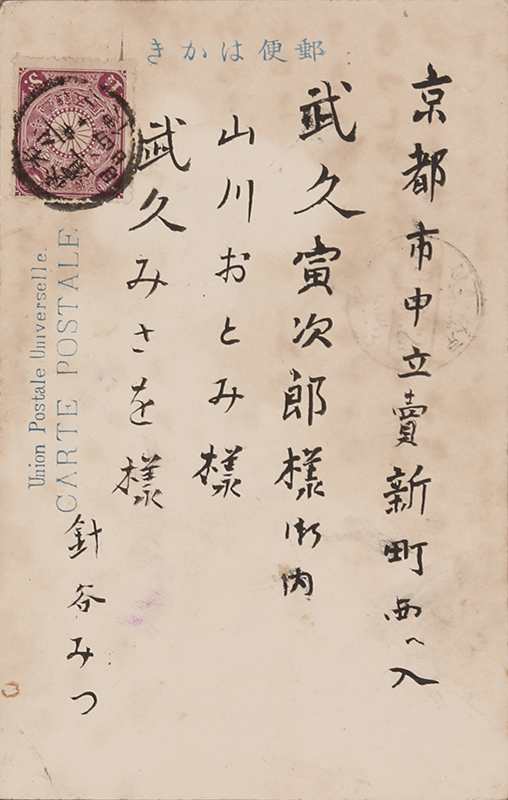 きかは便郵
京都市中立賣新町西へ入
武久寅次郎様御内
山川おとみ様
武久みさを様
針谷みつ
Union Postale Universelle.
CARTE POSTALE